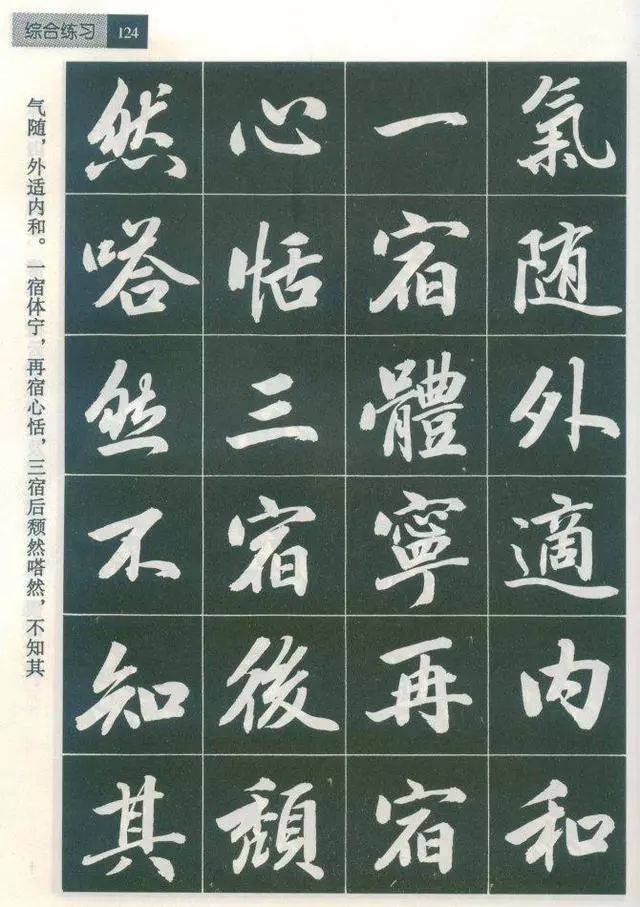 综合练习 124
氣随外適内和
一宿體寧再宿
心恬三宿後頹
然嗒然不知其
气随，外适内和。一宿体宁，再宿心恬，三宿后颓然嗒然，不知其